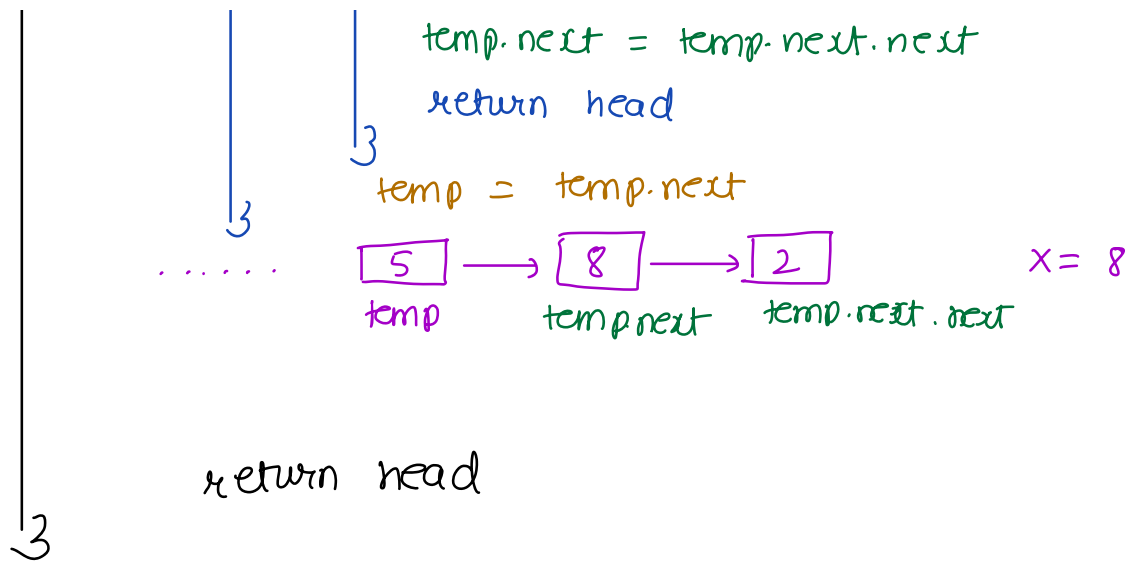 temp.next = temp.next.next
return head
}
temp = temp.next
}
...... 5 → 8 → 2 x = 8
temp temp next temp.next.next
return head
}